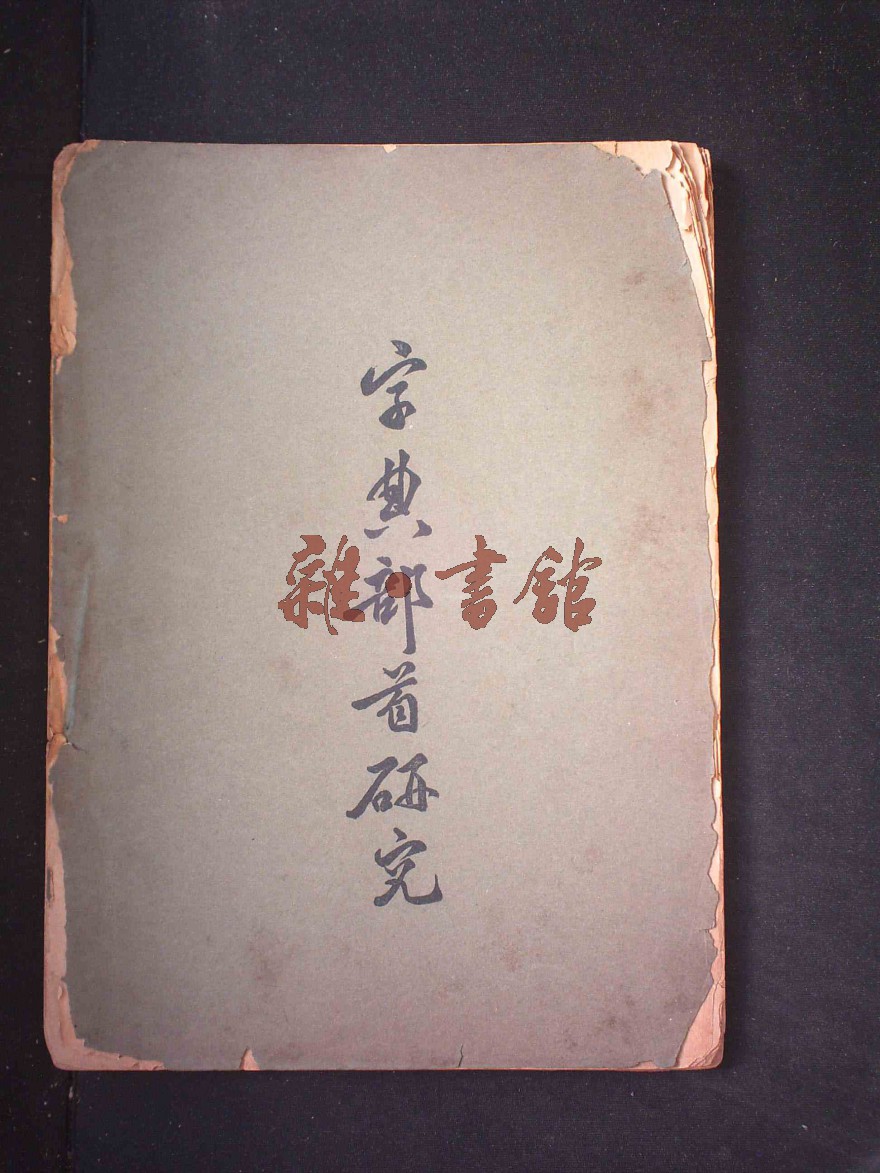 字典部首研究
雜·書館